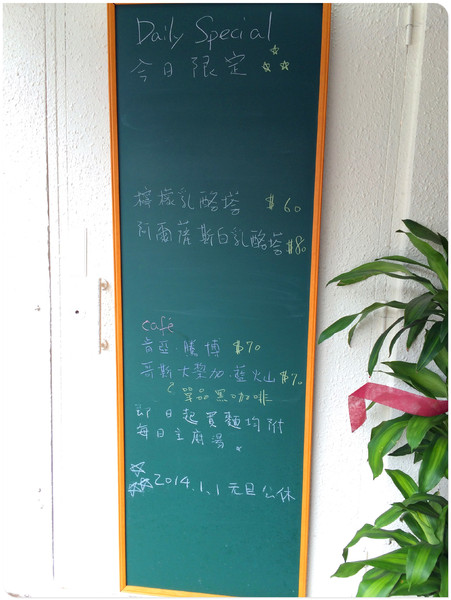 Daily Special
今日限定
檸檬乳酪塔 $60
阿爾薩斯白乳酪塔 $80
café
肯亞.騰博 $70
哥斯大黎加.藍火山 $70
單品黑咖啡
即日起買麵均附
每日主廚湯。
2014.1.1 元旦公休